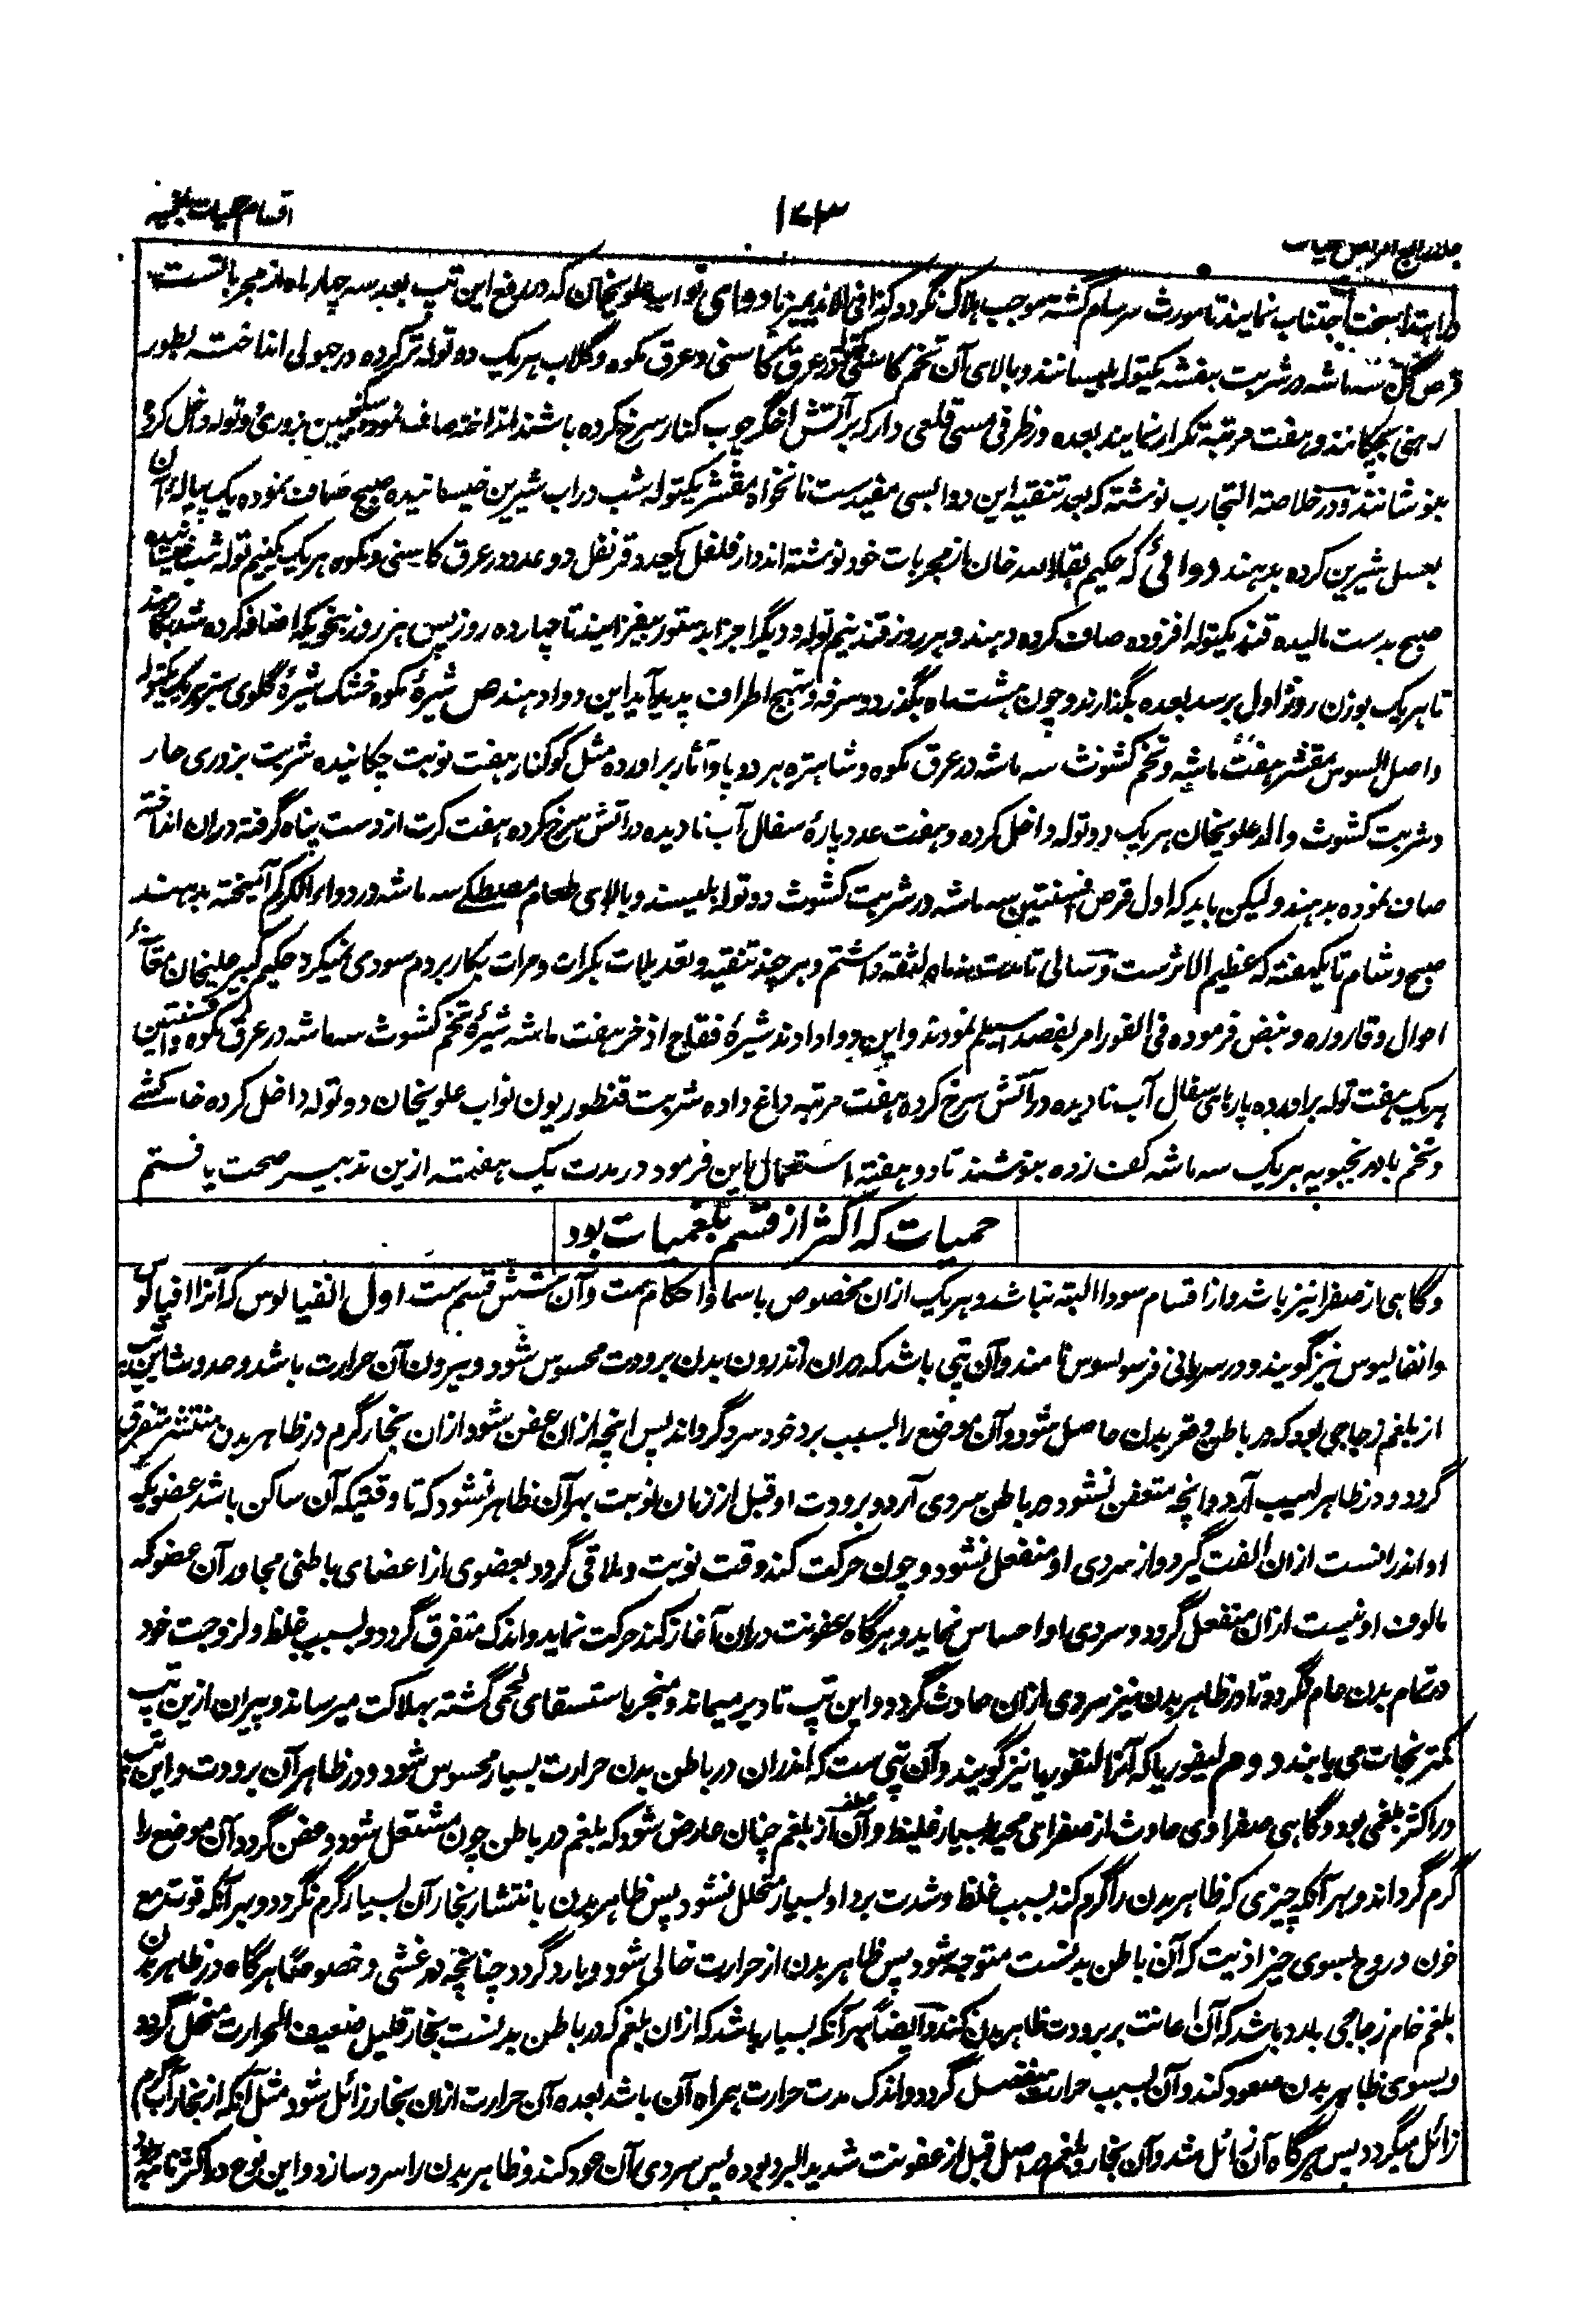 اقسام حمیات بلغمیه
۱۷۳
جلد رابع امراض حمیات
ابتدا سخت اجتناب نمایند تا مورث سرسام گشته موجب هلاک نگردد دوای نواب علویخان که در رفع این تپ بعد سه چهار ماه از مجربات ست
قرص گل سه ماشه در شربت بنفشه یکتوله بلیسانند و بالای آن تخم کاسنی در عرق کاسنی و عرق مکوه و گلاب هر یک دو توله تر کرده در جهولی انداخته بطور
رینی بچکانند و هفت مرتبه تکرار نمایند بعده در ظرفی مسی قلعی دار که بر آتش اخگر چوب کنار سرخ کرده باشند انداخته صاف نموده سکنجبین بزوری دو توله داخل کرده
بنوشانند و در خلاصة التجارب نوشته که بعد تنقیه این دوا بسی مفید ست نانخواه مقشر یکتوله شب در آب شیرین خیسانیده صبح صاف نموده یک پیاله آن
بعسل شیرین کرده بدهند دوائی که حکیم بقاءالله خان از مجربات خود نوشته اند دار فلفل یکعدد قرنفل دو عدد در عرق کاسنی و مکوه هر یک یکنیم توله شب خیسانیده
صبح بدست مالیده قند یکتوله افزوده صاف کرده دهند و هر روز قند نیم توله و دیگر اجزا بدستور بیفزایند تا چهارده روز پس هر روز بنحویکه اضافه کرده شد بکاهند
تا هر یک بوزن روز اول برسد بعده بگذارند و چون هشت ماه بگذرد و سرفه و تهبج اطراف پدید آید این دوا دهند ص شیرهٔ مکوه خشک شیرهٔ گلوی سبز هر یک یکتوله
و اصل السوس مقشر هفت ماشه و تخم کشوث سه ماشه در عرق مکوه و شاهتره هر دو پاو آثار براورده مثل کوکنار هفت نوبت چکانیده شربت بزوری حار
و شربت کشوث والد علویخان هر یک دو توله داخل کرده و هفت عدد پارهٔ سفال آب نادیده در آتش سرخ کرده هفت کرت از دست پناه گرفته دران انداخته
صاف نموده بدهند و لیکن باید که اول قرص افسنتین سه ماشه در شربت کشوث دو توله بلیسند و بالای طعام مصطکی سه ماشه در دواء الکرکم آمیخته بدهند
صبح و شام تا یکهفته که عظیم الاثرست و سالی تا مدت نه ماه لثقه داشتم و هر چند تنقیه و تعدیلات بکرات و مرات بکار بردم سودی نمیکرد حکیم کبیر علیخان
احوال و قاروره و نبض فرموده فی الفور امر بفصد اسیلم نمودند و این دوا دادند شیرهٔ فقاح اذخر هفت ماشه شیرهٔ تخم کشوث سه ماشه در عرق مکوه و افسنتین
هر یک هفت توله براورده پارهای سفال آب نادیده در آتش سرخ کرده هفت مرتبه داغ داده شربت قنطوریون نواب علویخان دو توله داخل کرده خاکشی
و تخم بادرنجبویه هر یک سه ماشه کفت زده بنوشند تا دو هفته استعمال این فرمود در مدت یک هفته ازین تدبیر صحت یافتم
حمیات که اکثر از قسم بلغمیات بود
و گاهی از صفرا نیز باشد و از اقسام سودا البته نباشد و هر یک ازان مخصوص باسما و احکام ست و آن شش قسم ست اول انفیالوس که آنرا افیالوس
و انفالیوس نیز گویند و در سریانی فرسولوس نامند و آن تپی باشد که دران اندرون بدن برودت محسوس شود و بیرون آن حرارت باشد و حدوث این تپ
از بلغم زجاجی بود که در باطن و قعر بدن حاصل شود و آن موضع را بسبب برد خود سرد گرداند پس انچه ازان عفن شود ازان بخار گرم در ظاهر بدن منتشر متفرق
گردد و در ظاهر لهیب آرد و انچه متعفن نشود در باطن سردی آرد و برودت او قبل از زمان نوبت بهر آن ظاهر نشود که تا وقتیکه آن ساکن باشد عضویکه
او اندر انست ازان الفت گیرد و از سردی او منفعل نشود و چون حرکت کند وقت نوبت و ملاقی گردد بعضوی از اعضای باطنی مجاور آن عضو که
مالوف او نیست ازان منفعل گردد و سردی او احساس نماید و هرگاه عفونت دران آغاز کند حرکت نماید و اندک متفرق گردد و بسبب غلظ و لزوجت خود
در تمام بدن عام نگردد تا در ظاهر بدن نیز سردی ازان حادث گردد و این تپ تا دیر میماند و منجر باستسقای لحمی گشته بهلاکت میرساند و پیران ازین تپ
کمتر نجات می یابند دوم لیفوریا که آنرا لنقوریا نیز گویند و آن تپی ست که اندران در باطن بدن حرارت بسیار محسوس شود و در ظاهر آن برودت و این تپ
در اکثر بلغمی بود و گاهی صفراوی حادث از صفرای محیه بسیار غلیظ و آن از بلغم چنان عارض شود که بلغم در باطن چون مشتعل شود و عفن گردد آن موضع را
گرم گرداند و بهر آنکه چیزی که ظاهر بدن را گرم کند بسبب غلظ و شدت برد او بسیار متحلل نشود پس ظاهر بدن بانتشار بخار آن بسیار گرم نگردد و بهر آنکه قوت مع
خون و روح بسوی حیز اذیت که آن باطن بدنست متوجه شود پس ظاهر بدن از حرارت خالی شود و بارد گردد چنانچه در غشی و خصوصاً هرگاه در ظاهر بدن
بلغم خام زجاجی بارد باشد که آن اعانت بر برودت ظاهر بدن کند و ایضاً بهر آنکه بسیار باشد که ازان بلغم که در باطن بدنست بخار قلیل ضعیف الحرارت منحل گردد
و بسوی ظاهر بدن صعود کند و آن بسبب حرارت منفصل گردد و اندک مدت حرارت همراه آن باشد بعده آن حرارت ازان بخار زائل شود مثل آنکه از بخار آب گرم
زائل میگردد پس هرگاه آن زائل شد و آن بخار بلغم در اصل قبل از عفونت شدید البرد بوده پس سردی آن عود کند و ظاهر بدن را سرد سازد و این نوع در اکثر